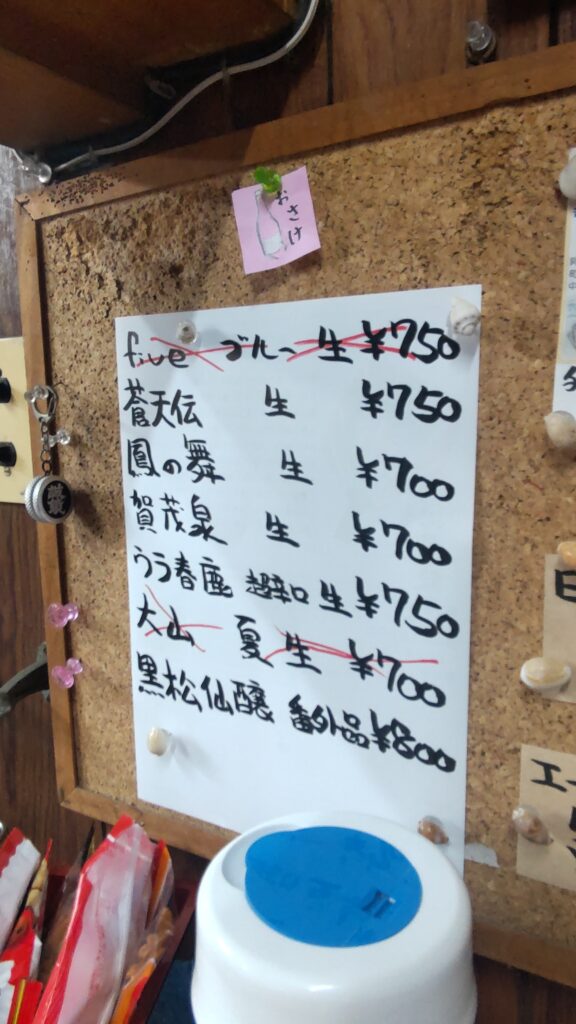 おさけ
five ブルー 生 ¥750
蒼天伝 生 ¥750
鳳の舞 生 ¥700
賀茂泉 生 ¥700
うら春鹿 超辛口 生 ¥750
大山 夏 生 ¥700
黒松仙醸 番外品 ¥800
エー